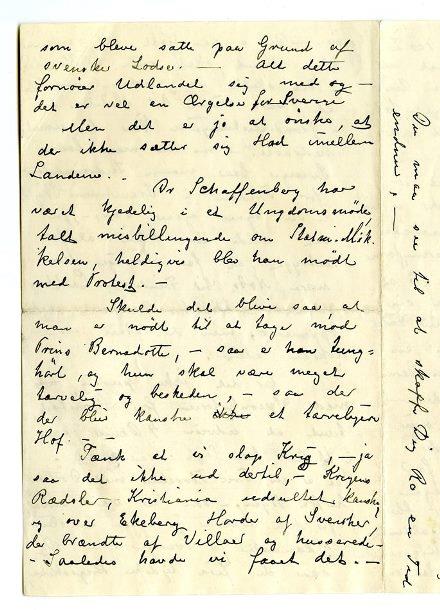 som bleve satte paa Grund af
svenske Lodse. — Alt dette
fornøier Udlandet sig med og —
det er vel en Ærgelse for Sverri
Men det er jo at ønske, at
der ikke sætter sig Had imellem
Landene. —
Dr Scharffenberg har
været kjedelig i et Ungdomsmøde
talt misbilligende om Statsm. Mik
kelsen, heldigvis blev han mødt
med Protest. —
Skulde det blive saa, at
man er nødt til at tage mod
Prins Bernadotte, — saa er han tung-
hørt, og hun skal være meget
tarvelig og beskeden, — saa der
der blir kanske et tarveligere
Hof. —
Tænk at vi slap Krig, — ja
saa det ikke ud dertil, — Krigens
Rædsler, Kristiania udsultet kanske,
og over Ekeberg Horder af Svensker,
der brændte af Villaer og husserede —
— Saaledes havde vi faaet det. —
Du maa se til at skaffe Dig Ro en Tid
endnu, —